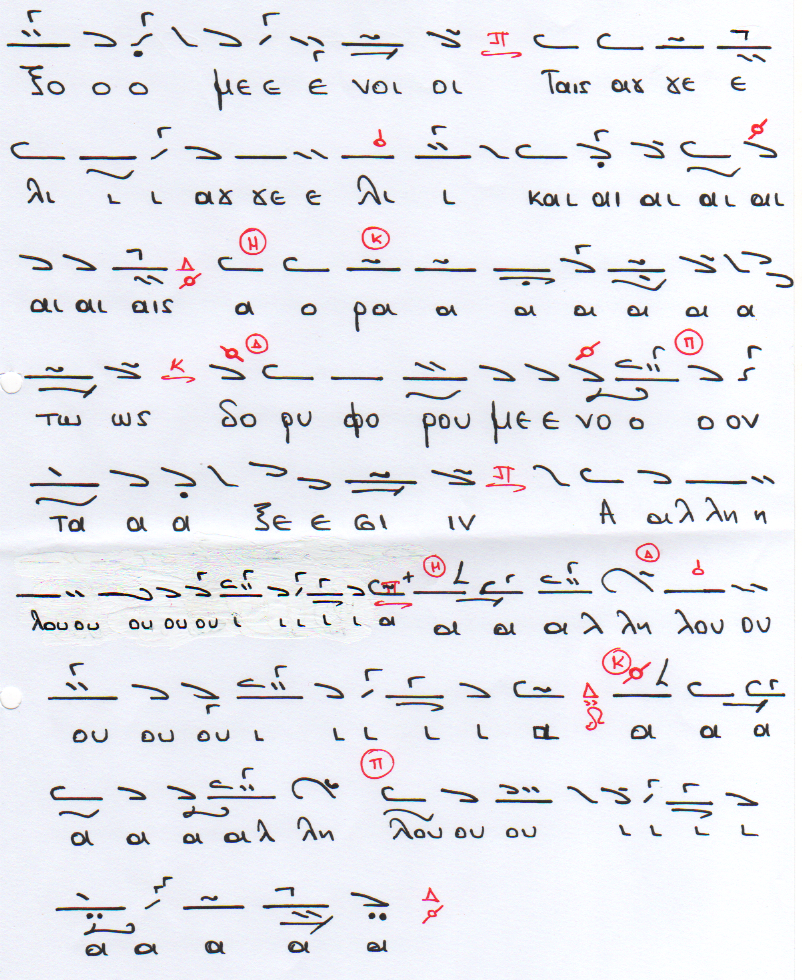 ξο ο ο με ε ε νοι οι Ταις αγ γε ε
λι ι ι αγ γε ε λι ι και αι αι αι αι
αι αι αις α ο ρα α α α α α α
τω ως δο ρυ φο ρου με ε νο ο ο ον
τα α α ξε ε σι ιν Α αλ λη η
λου ου ου ου ου ι ι ι ι ι α α α αλ λη λου ου
ου ου ου ι ι ι ι ι α α α α
α α α αλ λη λου ου ου ι ι ι ι
α α α α α